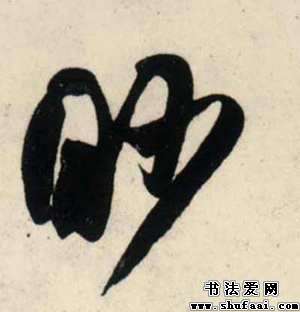 眇
书法爱网
www.shufaai.com